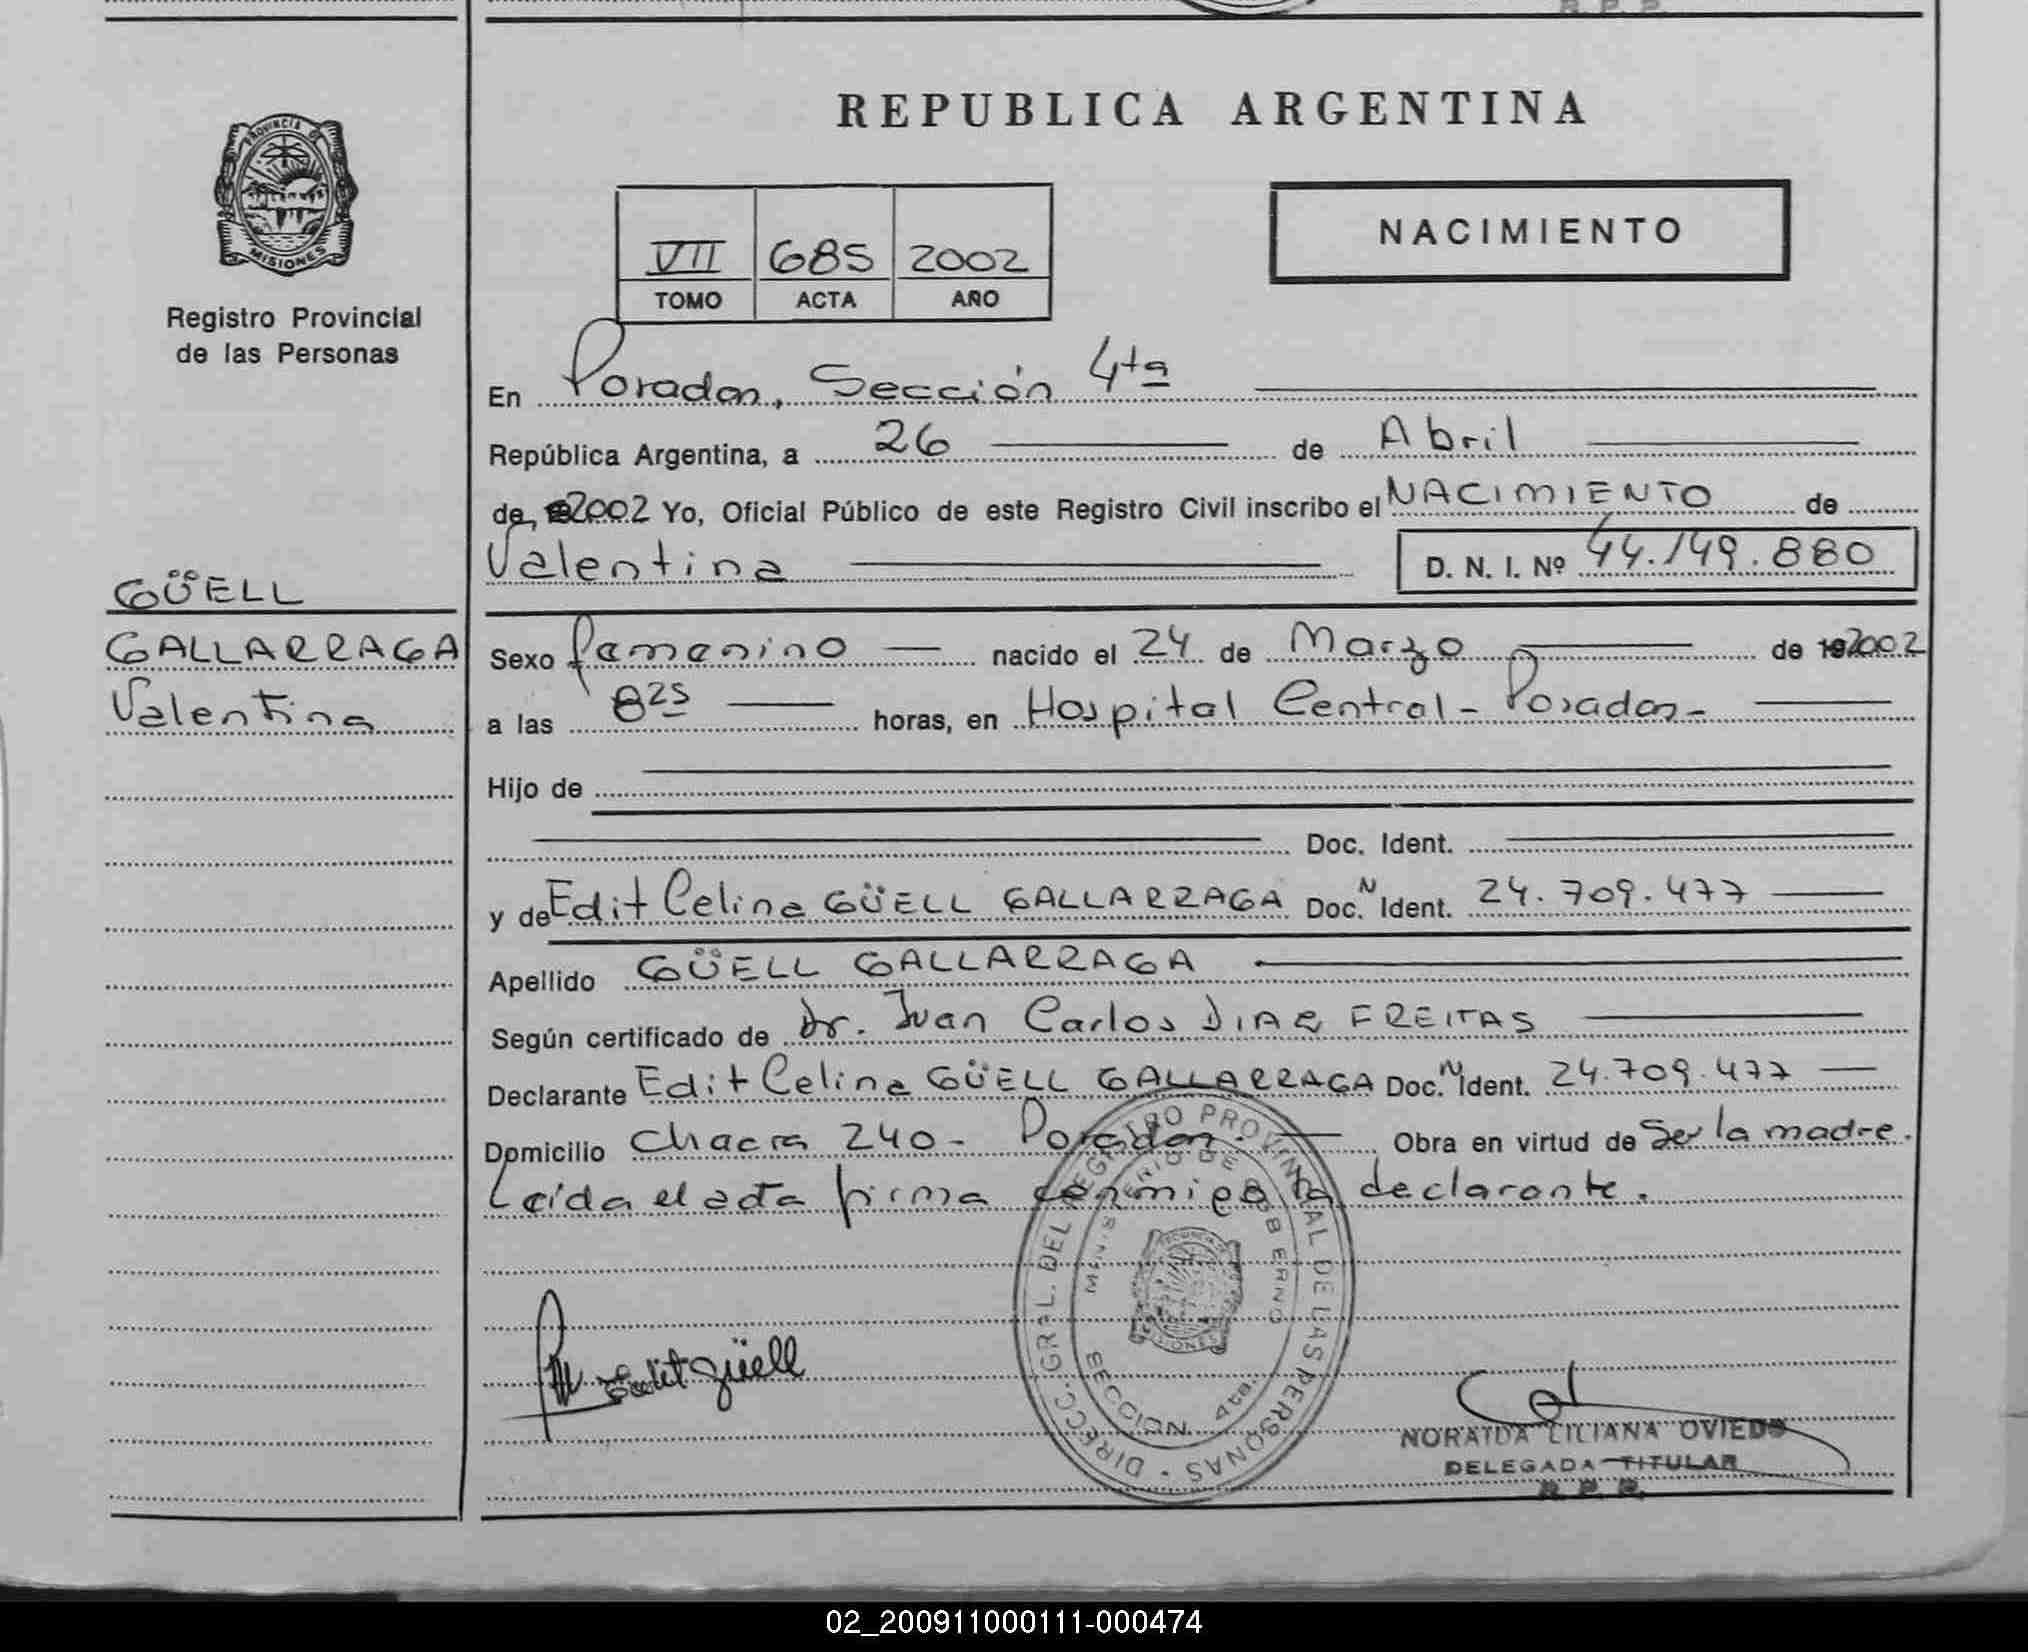 R. P. P.
REPUBLICA ARGENTINA
PROVINCIA DE
MISIONES
Registro Provincial
de las Personas
VII 685 2002
TOMO ACTA AÑO
NACIMIENTO
En Posadas, Sección 4ta
República Argentina, a 26 de Abril
de 2002 Yo, Oficial Público de este Registro Civil inscribo el NACIMIENTO de
Valentina D. N. I. Nº 44.149.880
GÜELL
GALLARRAGA
Valentina
Sexo femenino nacido el 24 de Marzo de 192002
a las 8 25 horas, en Hospital Central - Posadas -
Hijo de
Doc. Ident.
y de Edit Celina GÜELL GALLARRAGA Doc. N Ident. 24.709.477
Apellido GÜELL GALLARRAGA
Según certificado de Dr. Juan Carlos DIAZ FREITAS
Declarante Edit Celina GÜELL GALLARRAGA Doc. N Ident. 24.709.477
Domicilio Chacra 240 - Posadas. Obra en virtud de Ser la madre.
Leída el acta firma conmigo la declarante.
DIRECC. GRAL. DEL REGISTRO PROVINCIAL DE LAS PERSONAS
MINISTERIO DE GOBIERNO
SECCION 4ta.
Edit güell
NORAIDA LILIANA OVIEDO
DELEGADA TITULAR
R. P. P.
02_200911000111-000474